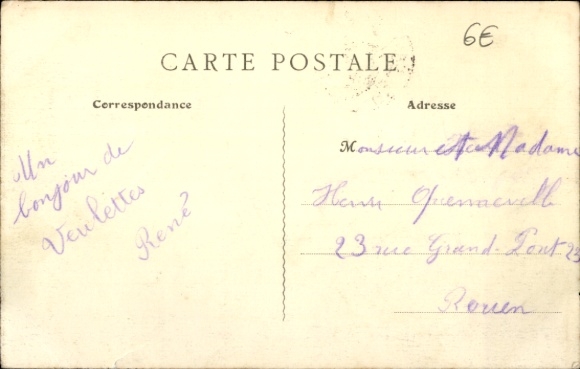 6€
CARTE POSTALE
Correspondance
Adresse
Un
bonjour de
Veulettes
René
Monsieur et Madame
Henri
23 rue Grand-Pont 23
Rouen